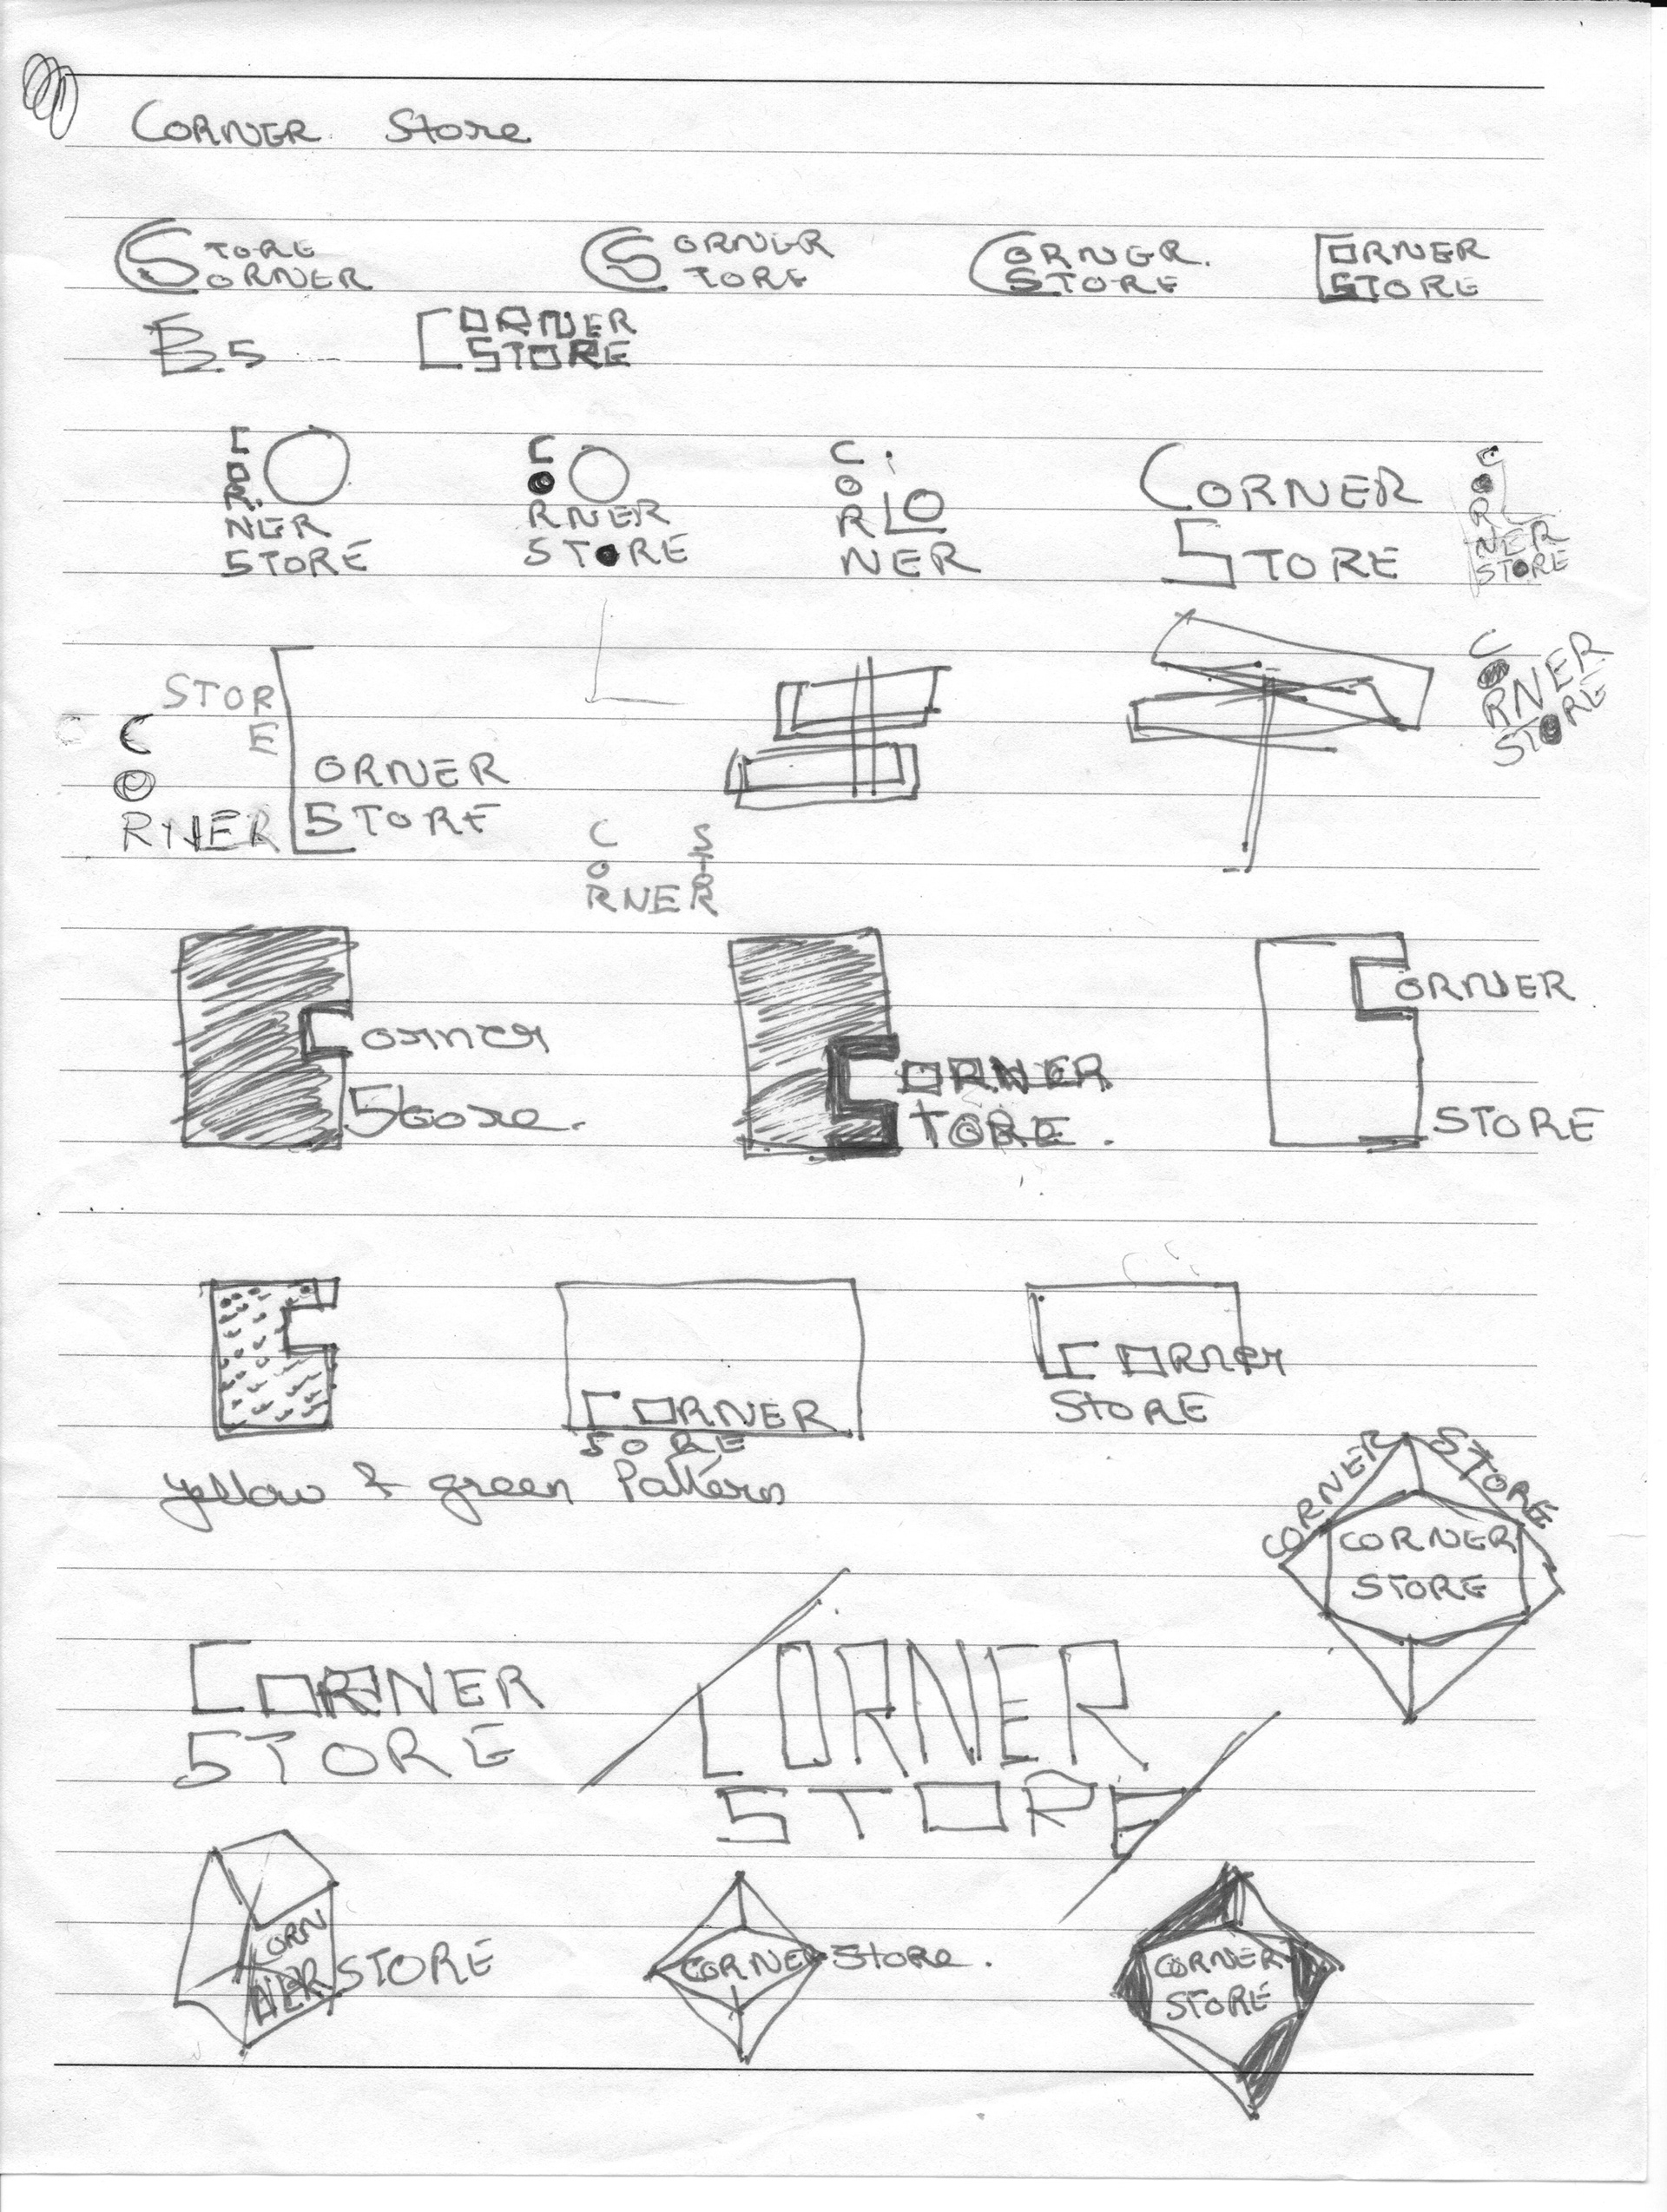 CORNER Store
STORE
CORNER
CORNER
STORE
CORNER
STORE
CORNER
STORE
CORNER
STORE
C
O
R
NER
STORE
C
O
RNER
STORE
C
O
R
NER
CORNER
STORE
C
O
R
NER
STORE
STOR
E
C
O
RNER
CORNER
STORE
C
O
RNER
STORE
C
O
RNER
S
T
O
R
Corner
Store.
CORNER
STORE.
CORNER
STORE
CORNER
SORE
CORNER
STORE
yellow & green Pattern
CORNER STORE
CORNER
STORE
CORNER
STORE
CORNER
STORE
CORN
NER STORE
CORNER Store.
CORNER
STORE